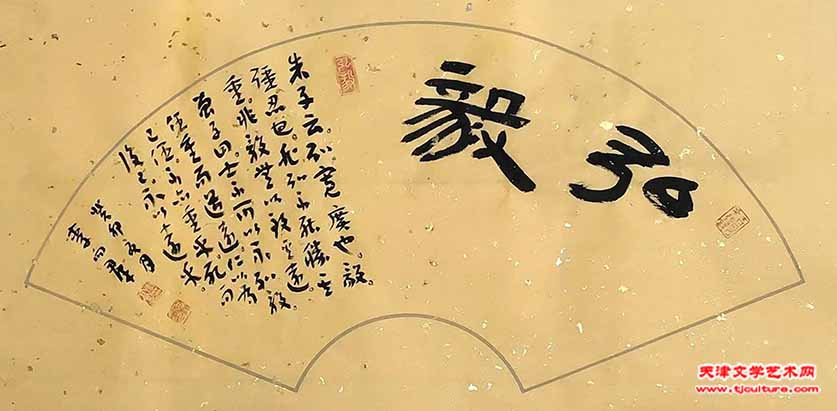 弘毅
朱子云。弘。寬廣也。毅。
強忍也。非弘不能勝其
重。非毅無以致其遠。
曾子曰士不可以不弘毅。
任重而道遠。仁以為
己任。不亦重乎。死而
後已。不亦遠乎。
癸卯 月
李向群
天津文学艺术网
www.tjculture.com